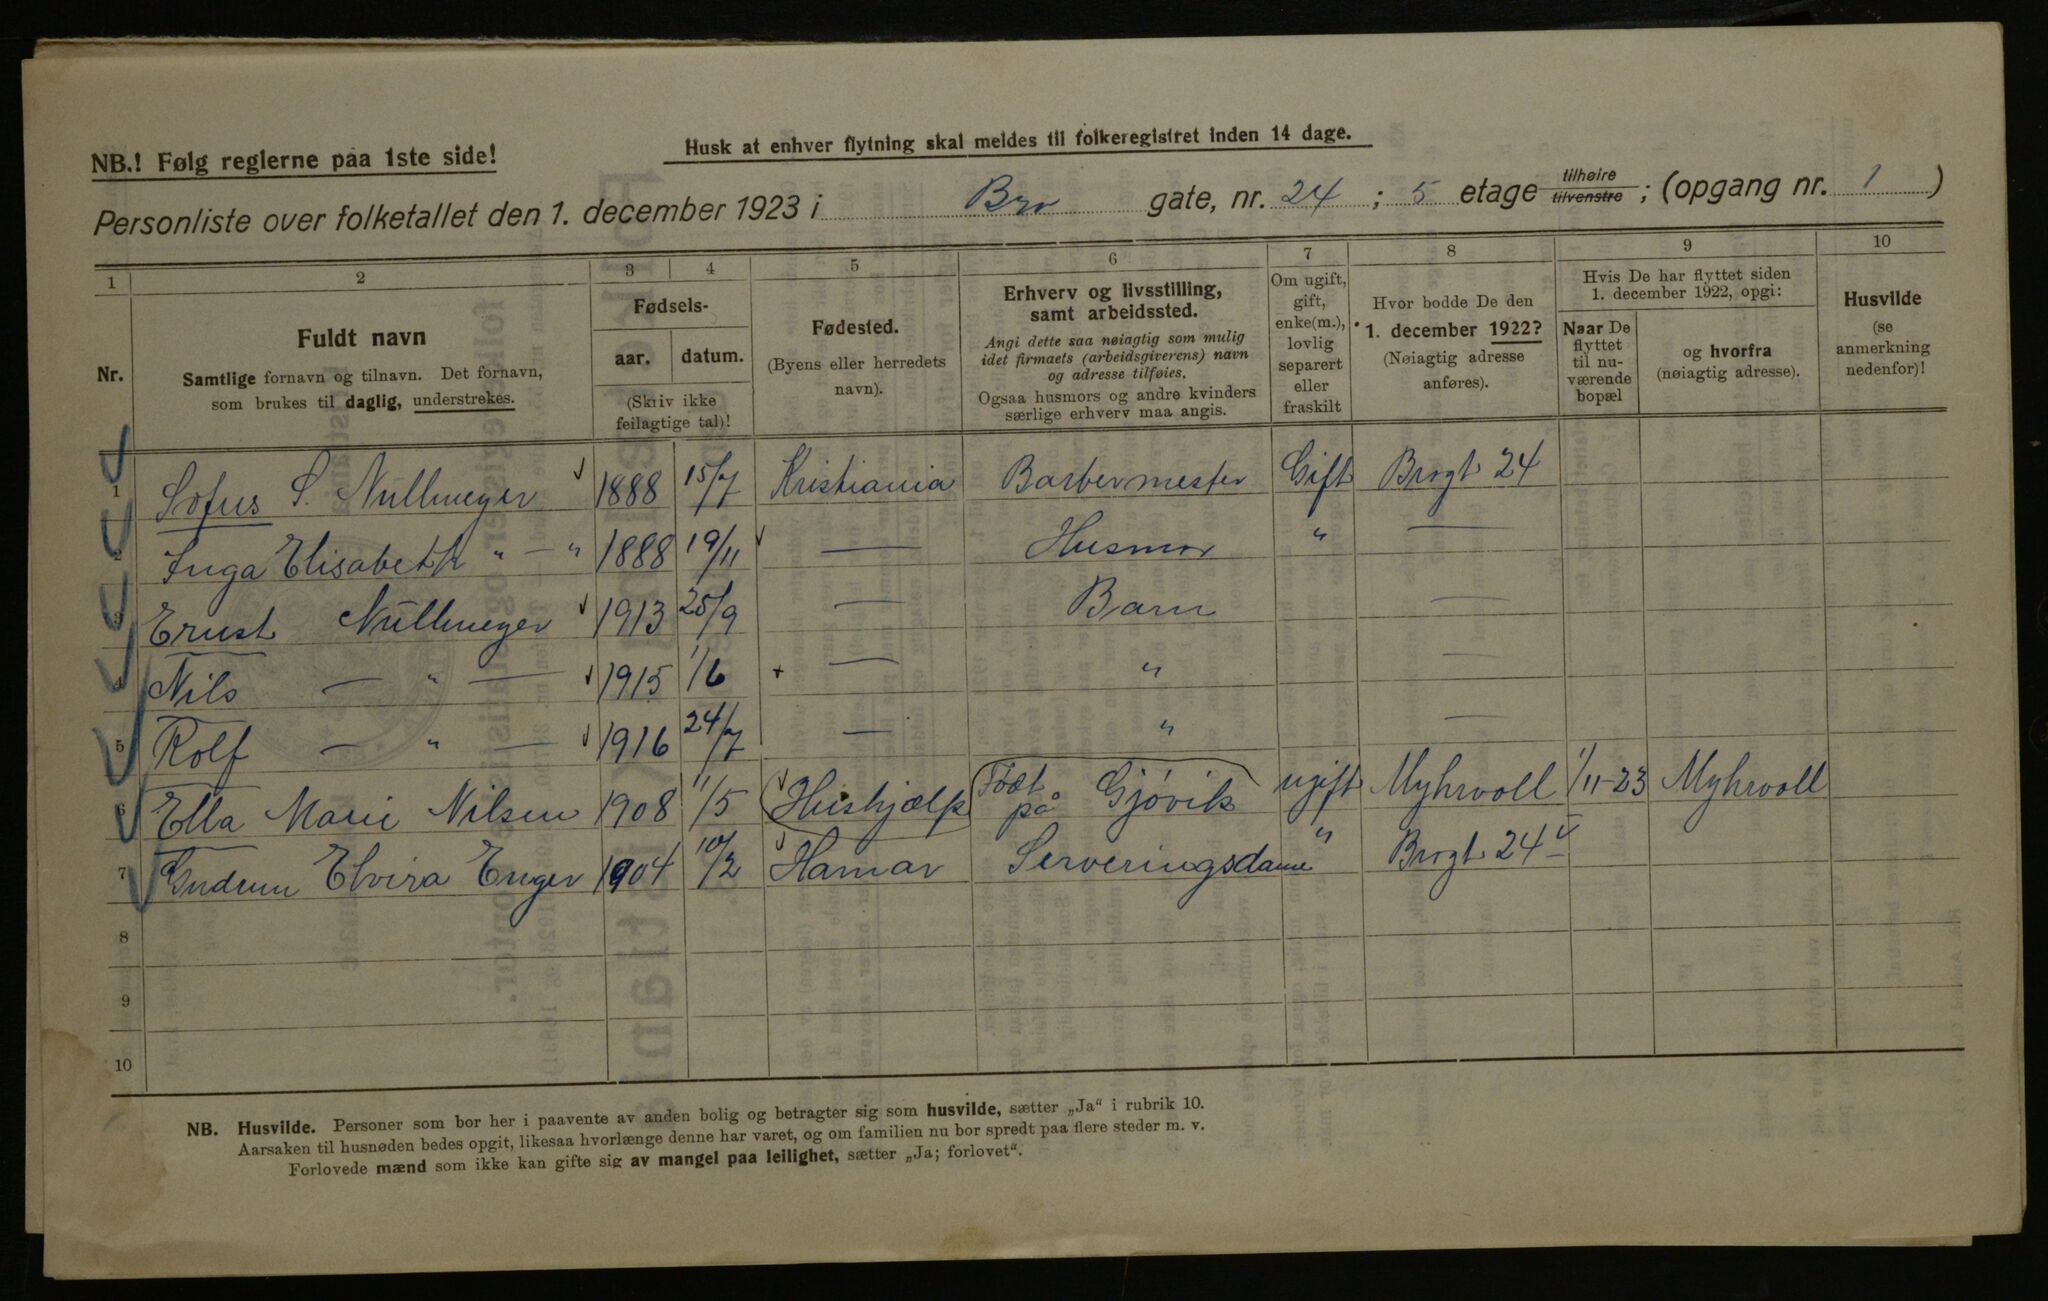 NB.! Følg reglerne paa 1ste side!
Husk at enhver flytning skal meldes til folkeregistret inden 14 dage.
Personliste over folketallet den 1. december 1923 i Bro gate, nr. 24 ; 5 etage tilhøire tilvenstre ; (opgang nr. 1 )
1 2 3 4 5 6 7 8 9 10
Nr.
Fuldt navn
Samtlige fornavn og tilnavn. Det fornavn,
som brukes til daglig, understrekes.
Fødsels-
aar. datum.
(Skriv ikke
feilagtige tal)!
Fødested.
(Byens eller herredets
navn).
Erhverv og livsstilling,
samt arbeidssted.
Angi dette saa nøiagtig som mulig
idet firmaets (arbeidsgiverens) navn
og adresse tilføies.
Ogsaa husmors og andre kvinders
særlige erhverv maa angis.
Om ugift,
gift,
enke(m.),
lovlig
separert
eller
fraskilt
Hvor bodde De den
1. december 1922?
(Nøiagtig adresse
anføres).
Hvis De har flyttet siden
1. december 1922, opgi:
Naar De
flyttet
til nu-
værende
bopæl
og hvorfra
(nøiagtig adresse).
Husvilde
(se
anmerkning
nedenfor)!
1 Sofus S. Nullmeyer 1888 15/7 Kristiania Barbermester Gift Brogt 24
2 Inga Elisabeth " — " 1888 19/11 — Husmor " —
3 Ernst Nullmeyer 1913 25/9 — Barn —
4 Nils — " — 1915 1/6 + — " —
5 Rolf — " — 1916 24/7 — " —
6 Ella Marie Nilsen 1908 1/5 Hushjælp Født på Gjøvik ugift Myhrvoll 1/11-23 Myhrvoll
7 Gudrun Elvira Enger 1904 10/2 Hamar Serveringsdame " Brogt 24 V
8
9
10
NB. Husvilde. Personer som bor her i paavente av anden bolig og betragter sig som husvilde, sætter „Ja“ i rubrik 10.
Aarsaken til husnøden bedes opgit, likesaa hvorlænge denne har varet, og om familien nu bor spredt paa flere steder m. v.
Forlovede mænd som ikke kan gifte sig av mangel paa leilighet, sætter „Ja; forlovet“.